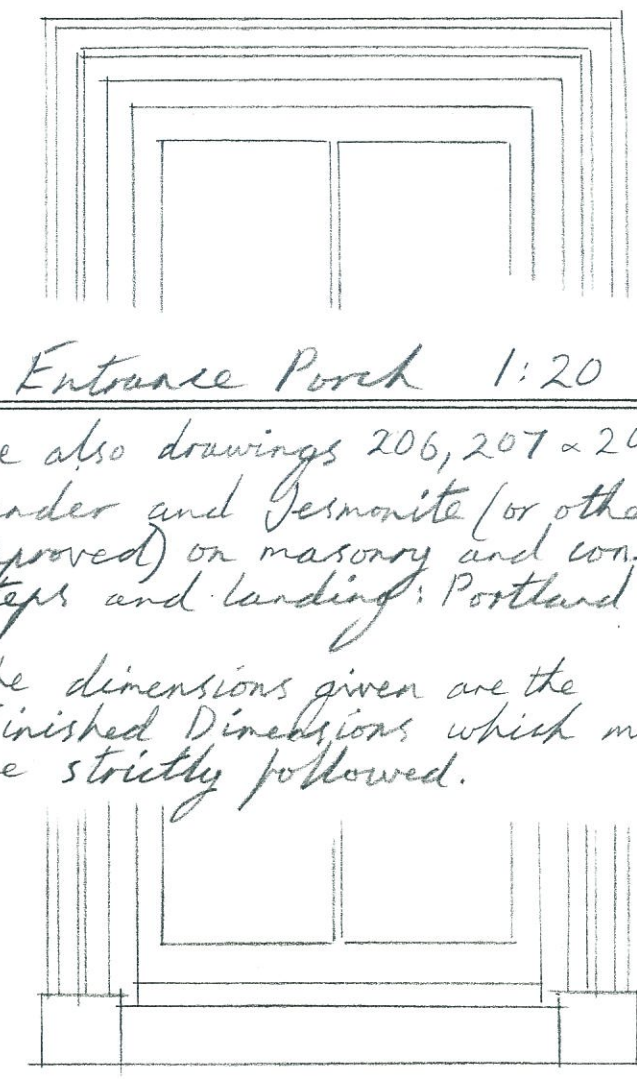 Entrance Porch 1:20
e also drawings 206, 207 & 20
nder and Jesmonite (or othe
proved) on masonry and con
teps and landing: Portland
he dimensions given are the
inished Dimensions which m
e strictly followed.